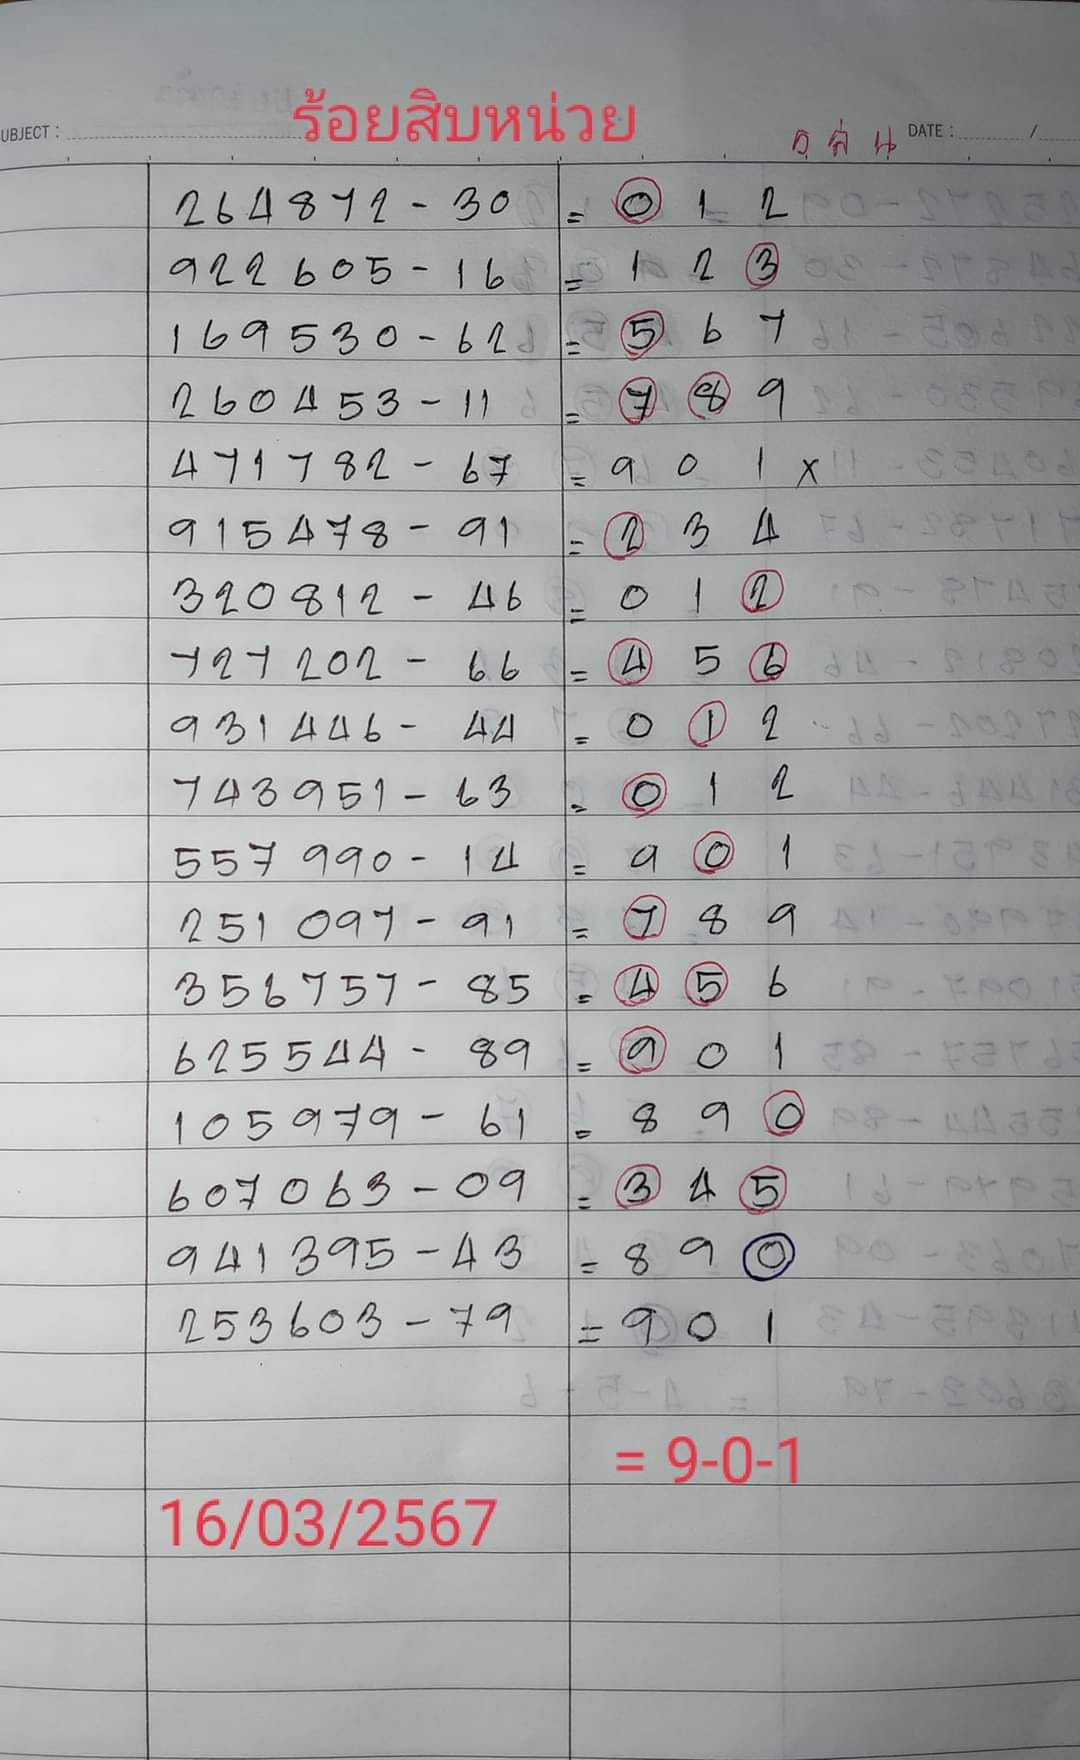 ร้อยสิบหน่วย
UBJECT :
DATE : /
264872 - 30 = 0 1 2
922605 - 16 = 1 2 3
169530 - 62 = 5 6 7
260453 - 11 = 7 8 9
471782 - 67 = 9 0 1 x
915478 - 91 = 2 3 4
320812 - 46 = 0 1 2
727202 - 66 = 4 5 6
931446 - 44 = 0 1 2
743951 - 63 = 0 1 2
557990 - 14 = 9 0 1
251097 - 91 = 7 8 9
356757 - 85 = 4 5 6
625544 - 89 = 9 0 1
105979 - 61 = 8 9 0
607063 - 09 = 3 4 5
941395 - 43 = 8 9 0
253603 - 79 = 9 0 1
= 9-0-1
16/03/2567